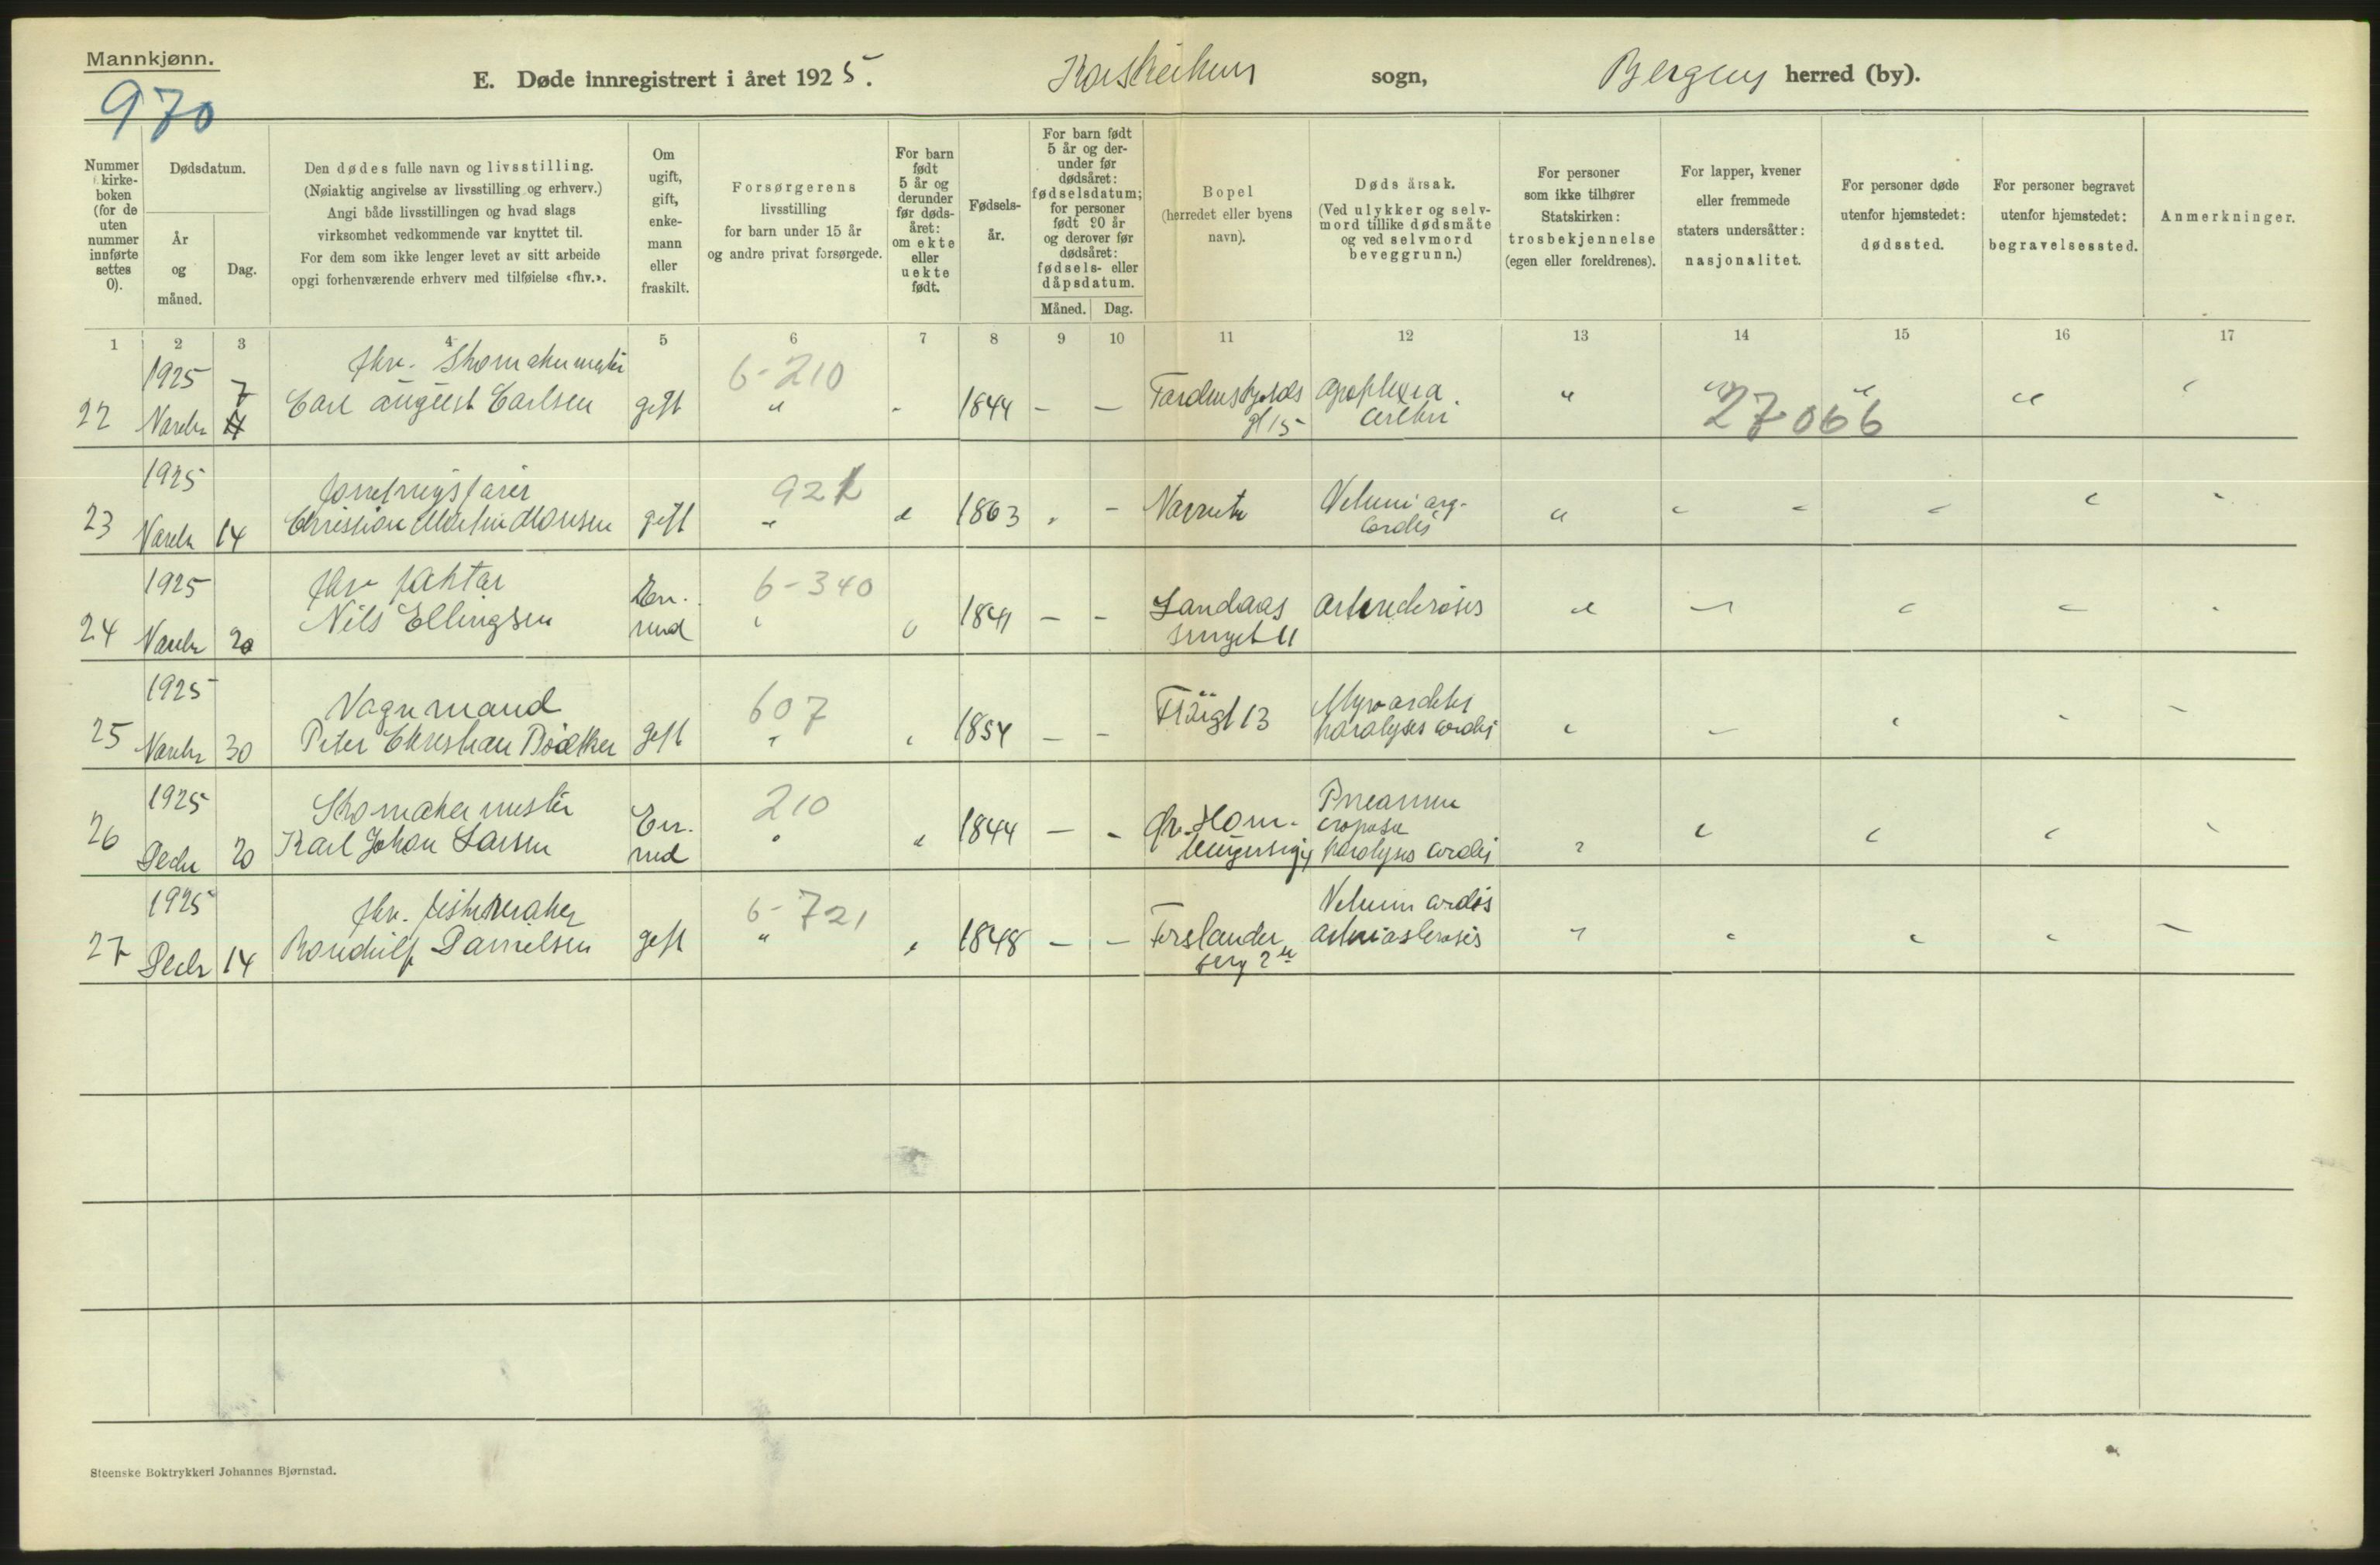 Mannkjønn.
970
E. Døde innregistrert i året 1925. Korskirkens sogn, Bergens herred (by).
Nummer i kirke-boken (for de uten nummer innførte settes 0).
Dødsdatum.
År og måned.
Dag.
Den dødes fulle navn og livsstilling.
(Nøiaktig angivelse av livsstilling og erhverv.)
Angi både livsstillingen og hvad slags
virksomhet vedkommende var knyttet til.
For dem som ikke lenger levet av sitt arbeide
opgi forhenværende erhverv med tilføielse «fhv.».
Om ugift, gift, enke-mann eller fraskilt.
Forsørgerens
livsstilling
for barn under 15 år
og andre privat forsørgede.
For barn født 5 år og derunder før døds-året: om ekte eller uekte født.
Fødsels-år.
For barn født 5 år og der-under før dødsåret: fødselsdatum; for personer født 90 år og derover før dødsåret: fødsels- eller dåpsdatum.
Måned. Dag.
Bopel
(herredet eller byens
navn).
Døds årsak.
(Ved ulykker og selv-
mord tillike dødsmåte
og ved selvmord
beveggrunn.)
For personer
som ikke tilhører
Statskirken:
trosbekjennelse
(egen eller foreldrenes).
For lapper, kvener
eller fremmede
staters undersåtter:
nasjonalitet.
For personer døde
utenfor hjemstedet:
dødssted.
For personer begravet
utenfor hjemstedet:
begravelsessted.
Anmerkninger.
1 2 3 4 5 6 7 8 9 10 11 12 13 14 15 16 17
1925 7 fhv. Skomakermester 6-210
22 Novebr Carl August Carlsen gift " - 1844 - - Tordenskjolds Apoplexia " " " " "
gt 15 cerebri 27066
1925 forretningsfører 921
23 Novebr 14 Christian Martin Monsen gift " " 1863 - - Vitium org.
cordis
1925 fhv fraktar Enk. 6-340
24 Novebr 20 Nils Ellingsen mnd " " 1841 - - Landaas
svinget 11
1925 Vognmand 607
25 Novebr 30 Peter Christian Bødtker gift " " 1854 - - 13 Myocarditis
paralysis cordis
1925 Skomakermester Enk. 210
26 Decbr 20 Karl Johan Larsen mnd " " 1844 - - paralysis cordis
1925 fhv. 6-721 Vitium cordis
27 Decbr 14 Danielsen gift " " 1848 - -
Steenske Boktrykkeri Johannes Bjørnstad.